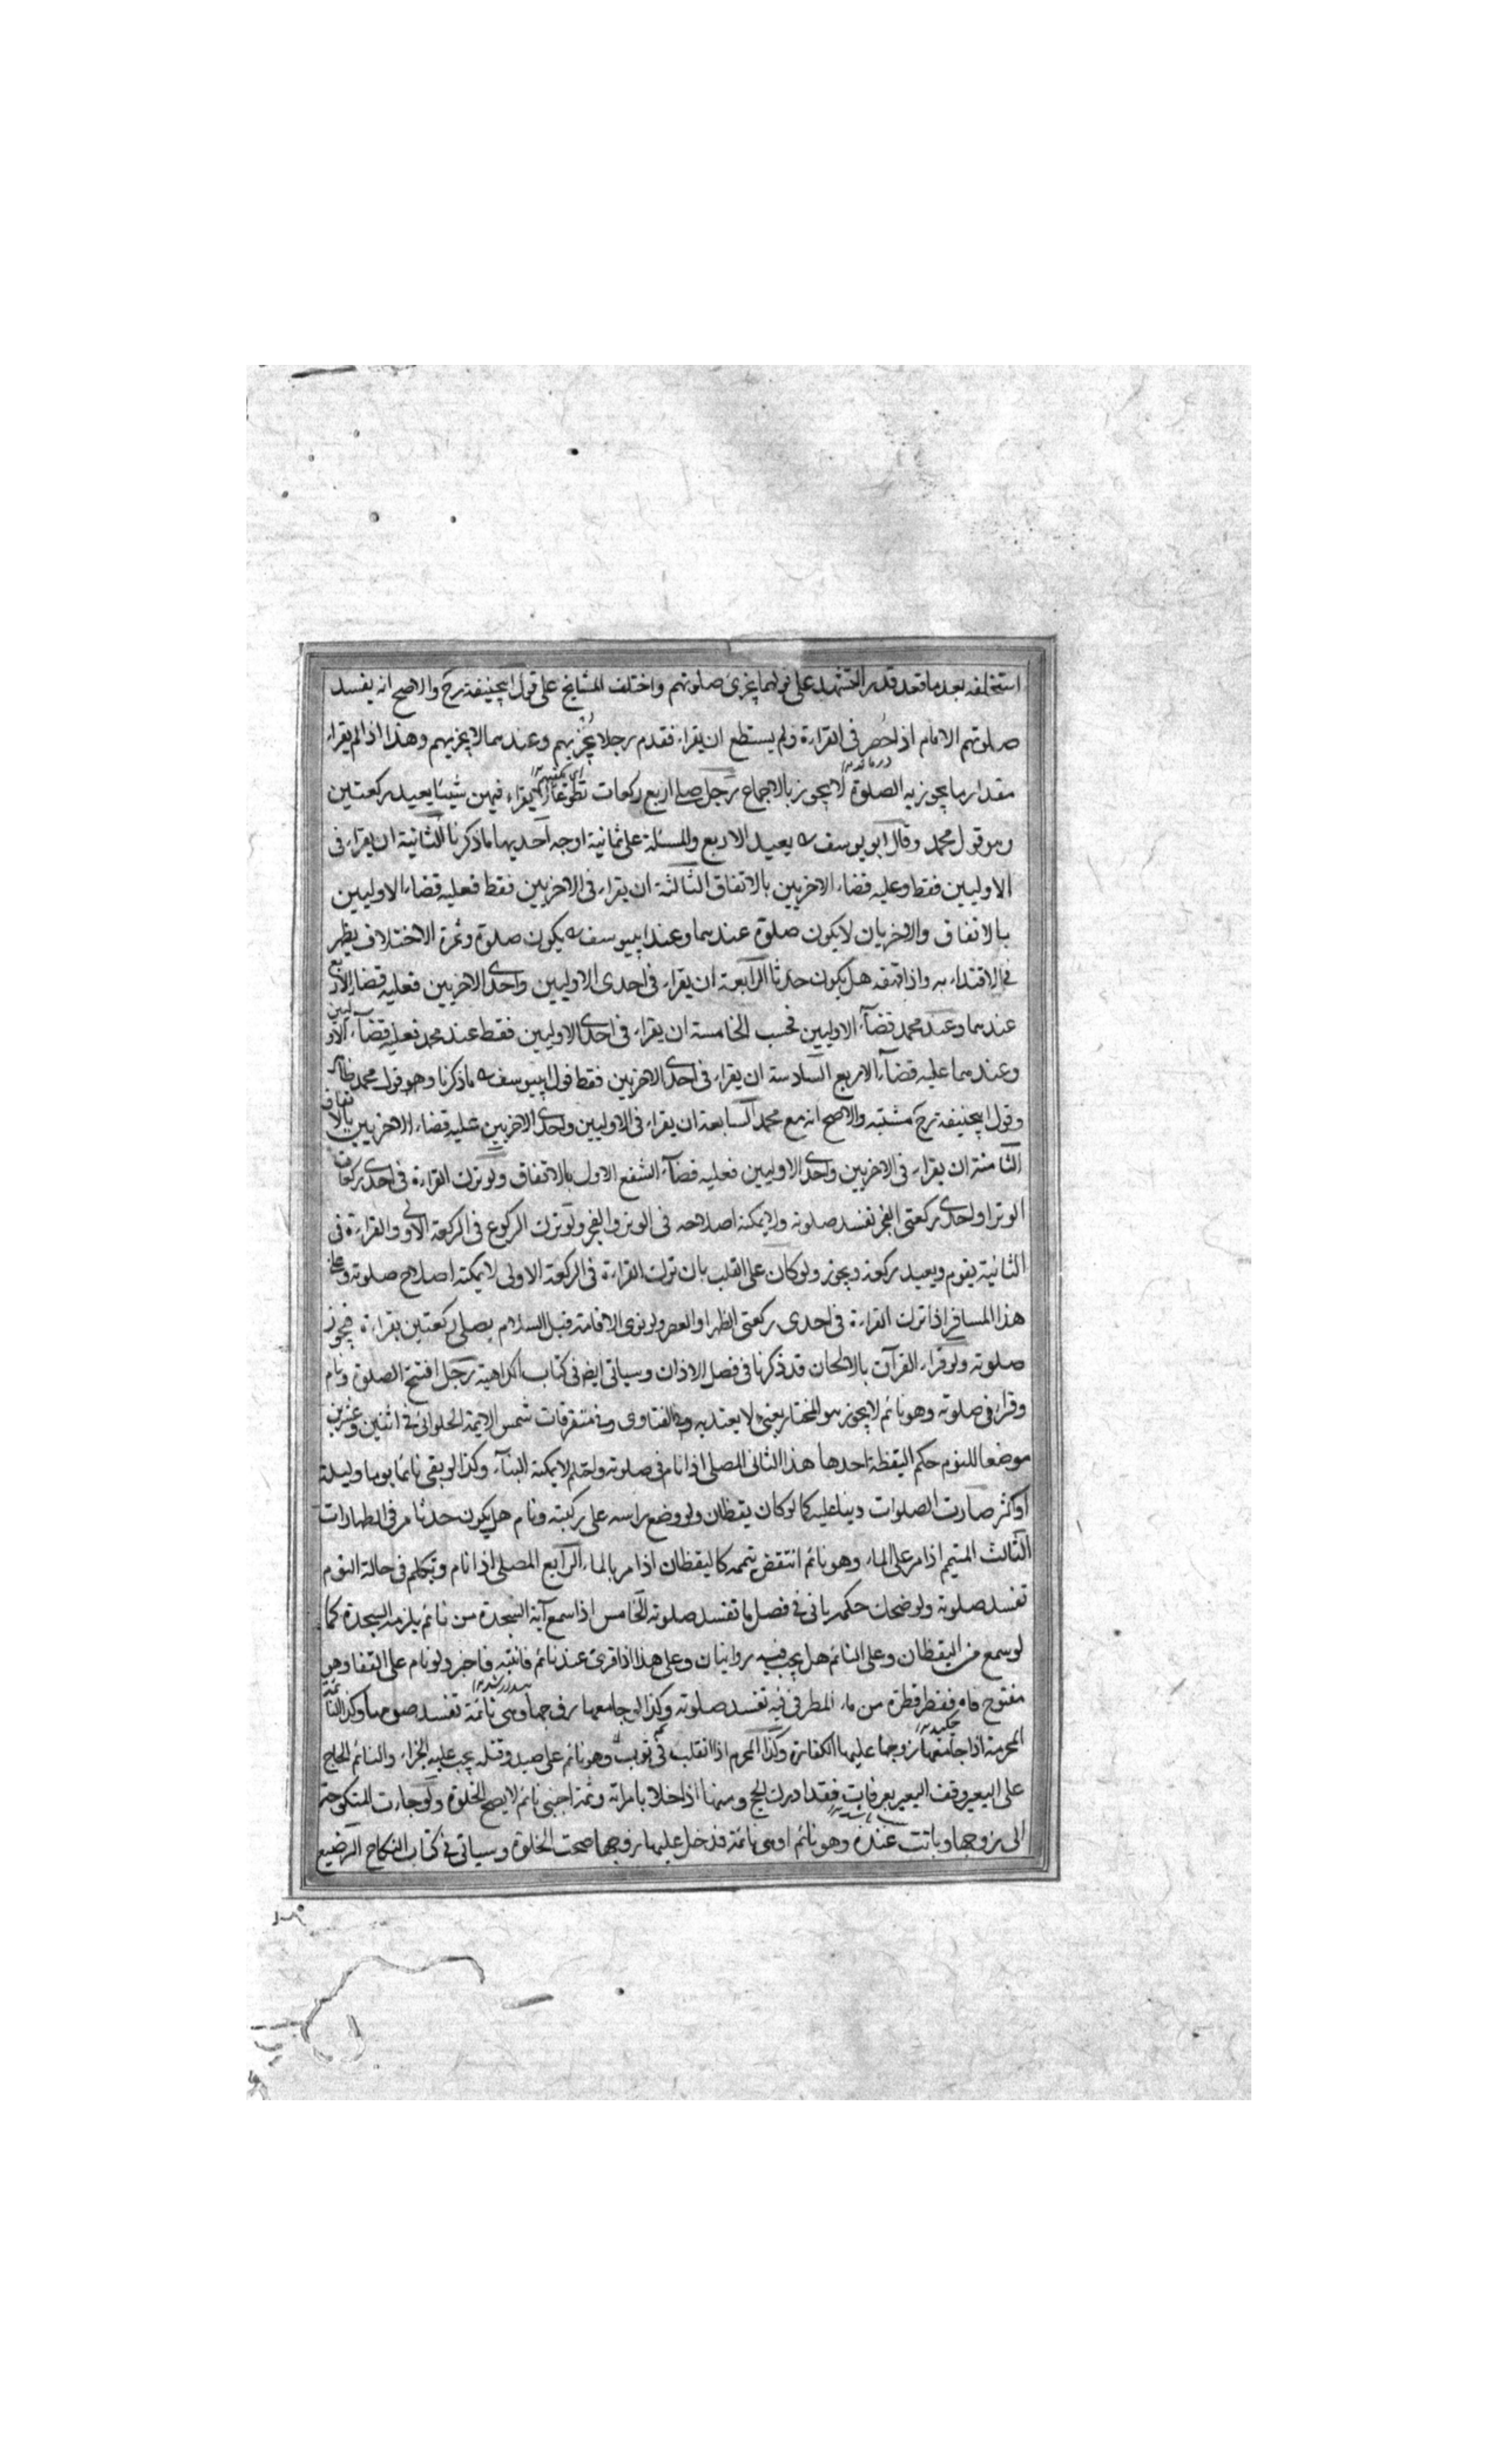 استخلفه بعد ما قعد قدر التشهد على قولهما يجزى صلوتهم واختلف المشايخ على قول ابيحنيفة رح والاصح انه يفسد
صلوتهم الامام اذا حصر فى القراءة ولم يستطع ان يقراء فقدم رجلا يجزيهم وعندهما لا يجزيهم وهذا اذا لم يقراء
مقدار ما يجوز به الصلوة لا يجوز بالاجماع رجل صلى اربع ركعات تطوعا لم يقراء فيهن شيئا يعيد ركعتين
وهو قول محمد وقال ابو يوسف يعيد الاربع والمسئلة على ثمانية اوجه احديها ما ذكرنا الثانية ان يقراء فى
الاوليين فقط وعليه قضاء الاخريين بالاتفاق الثالثة ان يقراء فى الاخريين فقط فعليه قضاء الاوليين
بالاتفاق والاخريان لا يكون صلوة عندهما وعند ابييوسف يكون صلوة وثمرة الاختلاف يظهر
فى الاقتداء به واذا قهقه هل يكون حدثا الرابعة ان يقراء فى احدى الاوليين واحدى الاخريين فعليه قضاء الاربع
عندهما وعند محمد قضآء الاوليين فحسب الخامسة ان يقراء فى احدى الاوليين فقط عند محمد فعليه قضآء الاوليين
وعندهما عليه قضآء الاربع السادسة ان يقراء فى احدى الاخريين فقط قول ابييوسف ما ذكرنا وهو قول محمد ظاهر
وقول ابيحنيفة رح مشتبه والاصح انه مع محمد السابعة ان يقراء فى الاوليين واحدى الاخريين عليه قضاء الاخريين بالاتفاق
الثامنة ان يقراء فى الاخريين واحدى الاوليين فعليه قضآء الشفع الاول بالاتفاق ولو ترك القراءة فى احدى ركعات
الوتر او احدى ركعتى الفجر تفسد صلوته ولا يمكنه اصلاحه فى الوتر والفجر ولو ترك الركوع فى الركعة الاولى والقراءة فى
الثانية يقوم ويعيد ركعة ويجوز ولو كان على القلب بان ترك القراءة فى الركعة الاولى لا يمكنه اصلاح صلوته وعلى
هذا المسافر اذا ترك القراءة فى احدى ركعتى الظهر او العصر ولو نوى الاقامة قبل السلام يصلى ركعتين بقراءة فيجوز
صلوته ولو قراء القرآن بالالحان قد ذكرنا فى فصل الاذان وسياتى ايضا فى كتاب الكراهية رجل افتتح الصلوة ونام
وقراء فى صلوته وهو نائم لا يجوز هو المختار يعنى لا يعتد به وفى الفتاوى وفى متفرقات شمس الايمة الحلوائى فى اثنين وعشرين
موضعا للنوم حكم اليقظة احدها هذا الثانى المصلى اذا نام فى صلوته واحتلم لا يمكنه البنآء وكذا لو بقى نائما يوما وليلة
او اكثر صارت الصلوات دينا عليه كما لو كان يقظان ولو وضع راسه على ركبته ونام هل يكون حدثا مر فى الطهارات
الثالث المتيمم اذا مر على الماء وهو نائم انتقض تيممه كاليقظان اذا مر بالماء الرابع المصلى اذا نام وتكلم فى حالة النوم
تفسد صلوته ولو ضحك حكمه ياتى فى فصل ما تفسد صلوته الخامس اذا سمع آية السجدة من نائم يلزمه السجدة كما
لو سمع من اليقظان وعلى النائم هل يجب فيه روايتان وعلى هذا اذا قرئ عند نائم فانتبه فاخبر ولو نام على القفا وهو
مفتوح فاه فقطر قطرة من ماء المطر فى فيه تفسد صلوته وكذا لو جامعها زوجها وهى نائمة تفسد صومها وكذا النائمة
المحرمة اذا جامعها زوجها عليها الكفارة وكذا المحرم اذا انقلب وهو نائم على صيد وقتله يجب عليه الجزاء والنائم الحاج
على البعير وقف البعير بعرفات فقد ادرك الحج ومنها اذا خلا بامراته وثمة اجنبى نائم لا يصح الخلوة ولو جاءت المنكوحة
الى زوجها وباتت عنده وهو نائم او هى نائمة فدخل عليها زوجها صحت الخلوة وسياتى فى كتاب النكاح الرضيع